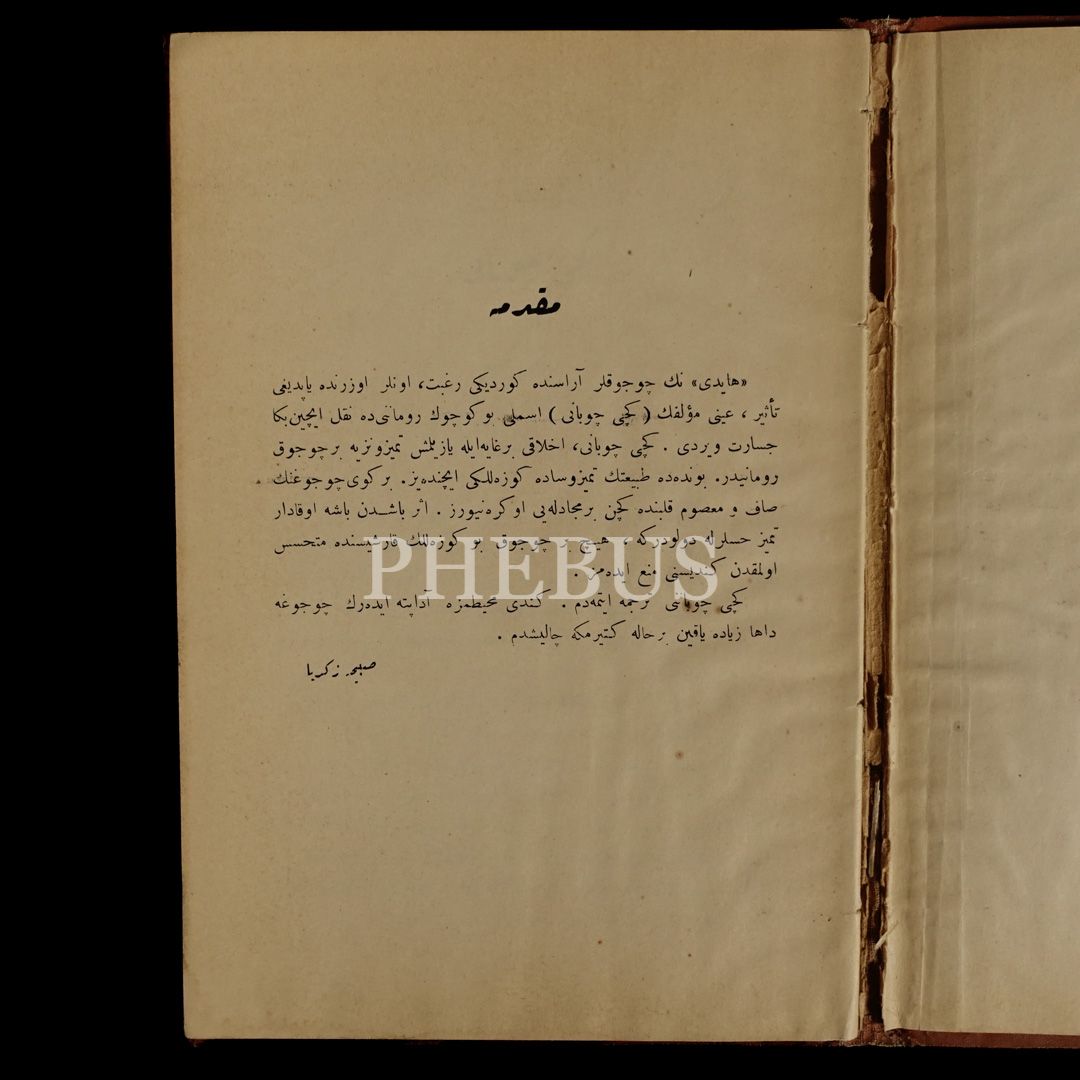 مقدمه
«هايدی» نك چوجوقلر آراسنده كورديكی رغبت، اونلر اوزرنده ياپديغی
تأثير ، عينی مؤلفك ( كچی چوبانی ) اسملی بو كوچوك روماننی‌ده نقل ايچين‌بكا
جسارت ويردی . كچی چوبانی، اخلاقی برغايه‌ايله يازيلمش تميزونزيه برچوجوق
رومانيدر. بونده‌ده طبيعتك تميزوساده كوزه‌للكی ايچنده‌يز. بركوی‌چوجوغنك
صاف و معصوم قلبنده كچن برمجادله‌يی اوكره‌نيورز . اثر باشــدن باشه اوقادار
تميز حسلرله دولودركه ، هيچ بر چوجوق بو كوزه‌للك قارشيسنده متحسس
اولمقدن كنديسنی منع ايده‌مز .
كچی چوبانی‌نی ترجمه ايتمه‌دم . كندی محيطمزه آداپته ايده‌رك چوجوغه
داها زياده ياقين برحاله كتيرمكه چاليشدم .
صبيحه زكريا
PHEBUS